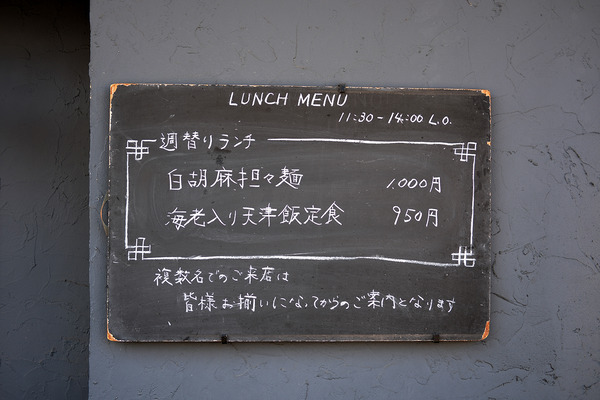 LUNCH MENU
11:30-14:00 L.O.
週替りランチ
白胡麻担々麺 1,000円
海老入り天津飯定食 950円
複数名でのご来店は
皆様お揃いになってからのご案内となります